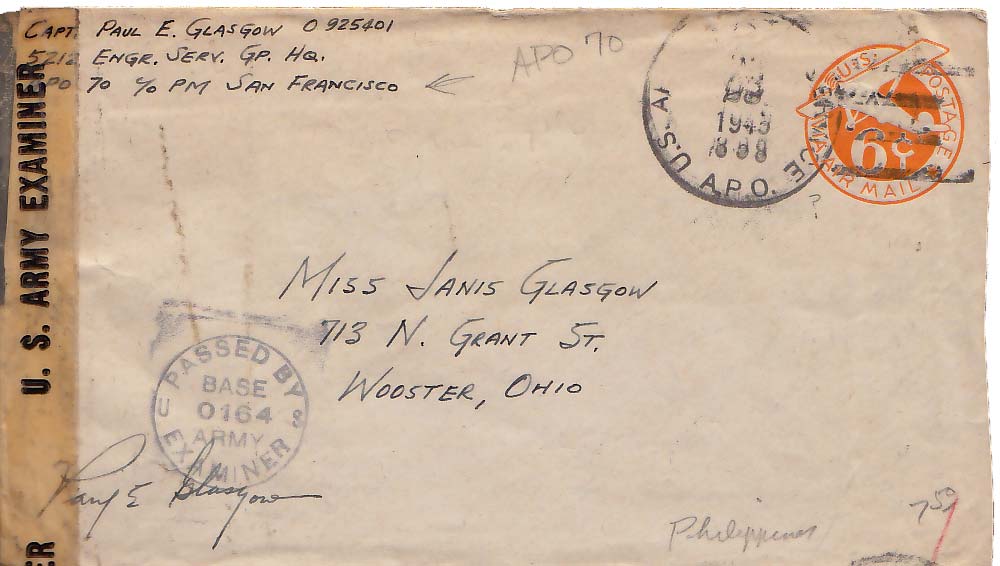 CAPT. PAUL E. GLASGOW O 925401
5212 ENGR. SERV. GP. HQ.
APO 70 c/o PM SAN FRANCISCO
APO 70
U.S. A.P.O.
1945
U.S. POSTAGE
6¢
VIA AIR MAIL
U. S. ARMY EXAMINER
MISS JANIS GLASGOW
713 N. GRANT ST.
WOOSTER, OHIO
PASSED BY
BASE
0164
ARMY
EXAMINER
Paul E Glasgow
Philippines
7 50
ER